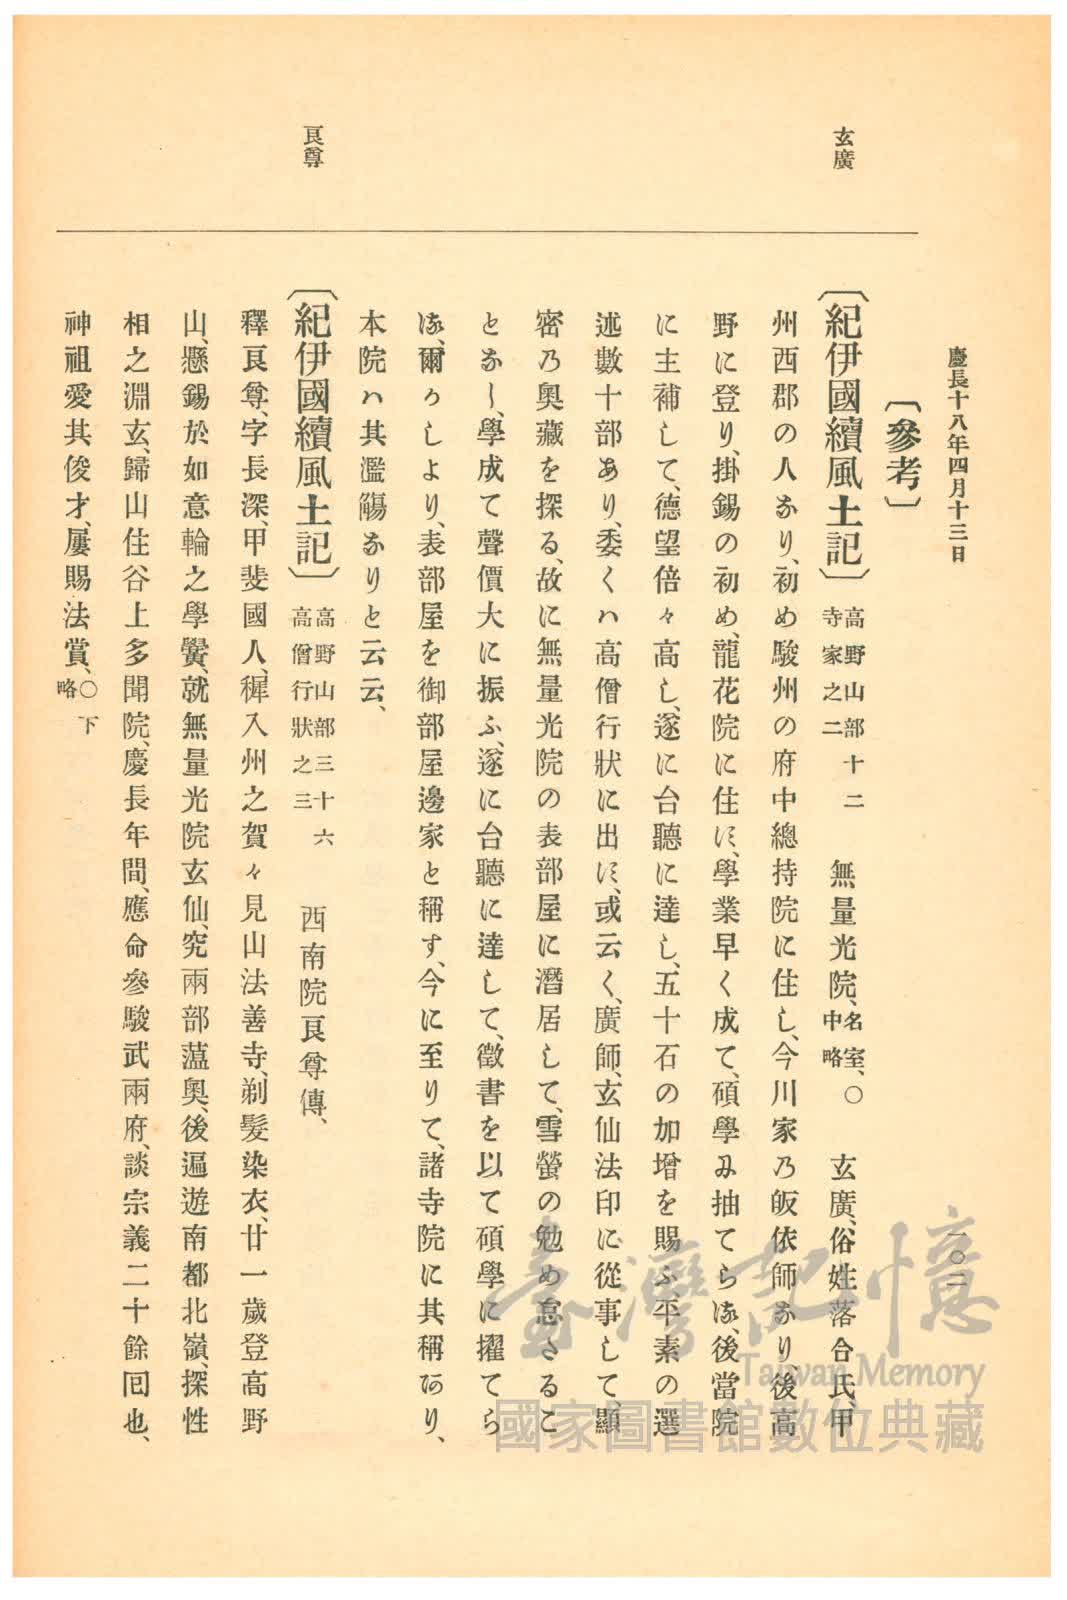 慶長十八年四月十三日
一〇二
〔參考〕
玄廣
〔紀伊國續風土記〕高野山部十二寺家之二 無量光院、名室、〇中略 玄廣、俗姓落合氏、甲
州西郡の人なり、初め駿州の府中總持院に住し、今川家乃皈依師なり、後高
野に登り、掛錫の初め、龍花院に住に、學業早く成て、碩學み抽てらる、後當院
に主補して、德望倍々高し、遂に台聽に達し、五十石の加增を賜ふ、平素の選
述數十部あり、委くハ高僧行狀に出に、或云く、廣師、玄仙法印に從事して、顯
密乃奧藏を探る、故に無量光院の表部屋に潛居して、雪螢の勉め怠さるこ
となし、學成て聲價大に振ふ、遂に台聽に達して、徵書を以て碩學に擢てら
る、爾りしより、表部屋を御部屋邊家と稱す、今に至りて、諸寺院に其稱あり、
本院ハ其濫觴なりと云云、
良尊
〔紀伊國續風土記〕高野山部三十六高僧行狀之三 西南院良尊傳、
釋良尊、字長深、甲斐國人、穉入州之賀々見山法善寺、剃髮染衣、廿一歲登高野
山、懸錫於如意輪之學黌、就無量光院玄仙、究兩部薀奧、後遍遊南都北嶺、探性
相之淵玄、歸山住谷上多聞院、慶長年間、應命參駿武兩府、談宗義二十餘回也、
神祖愛其俊才、屢賜法賞、〇下略
臺灣記憶
Taiwan Memory
國家圖書館數位典藏